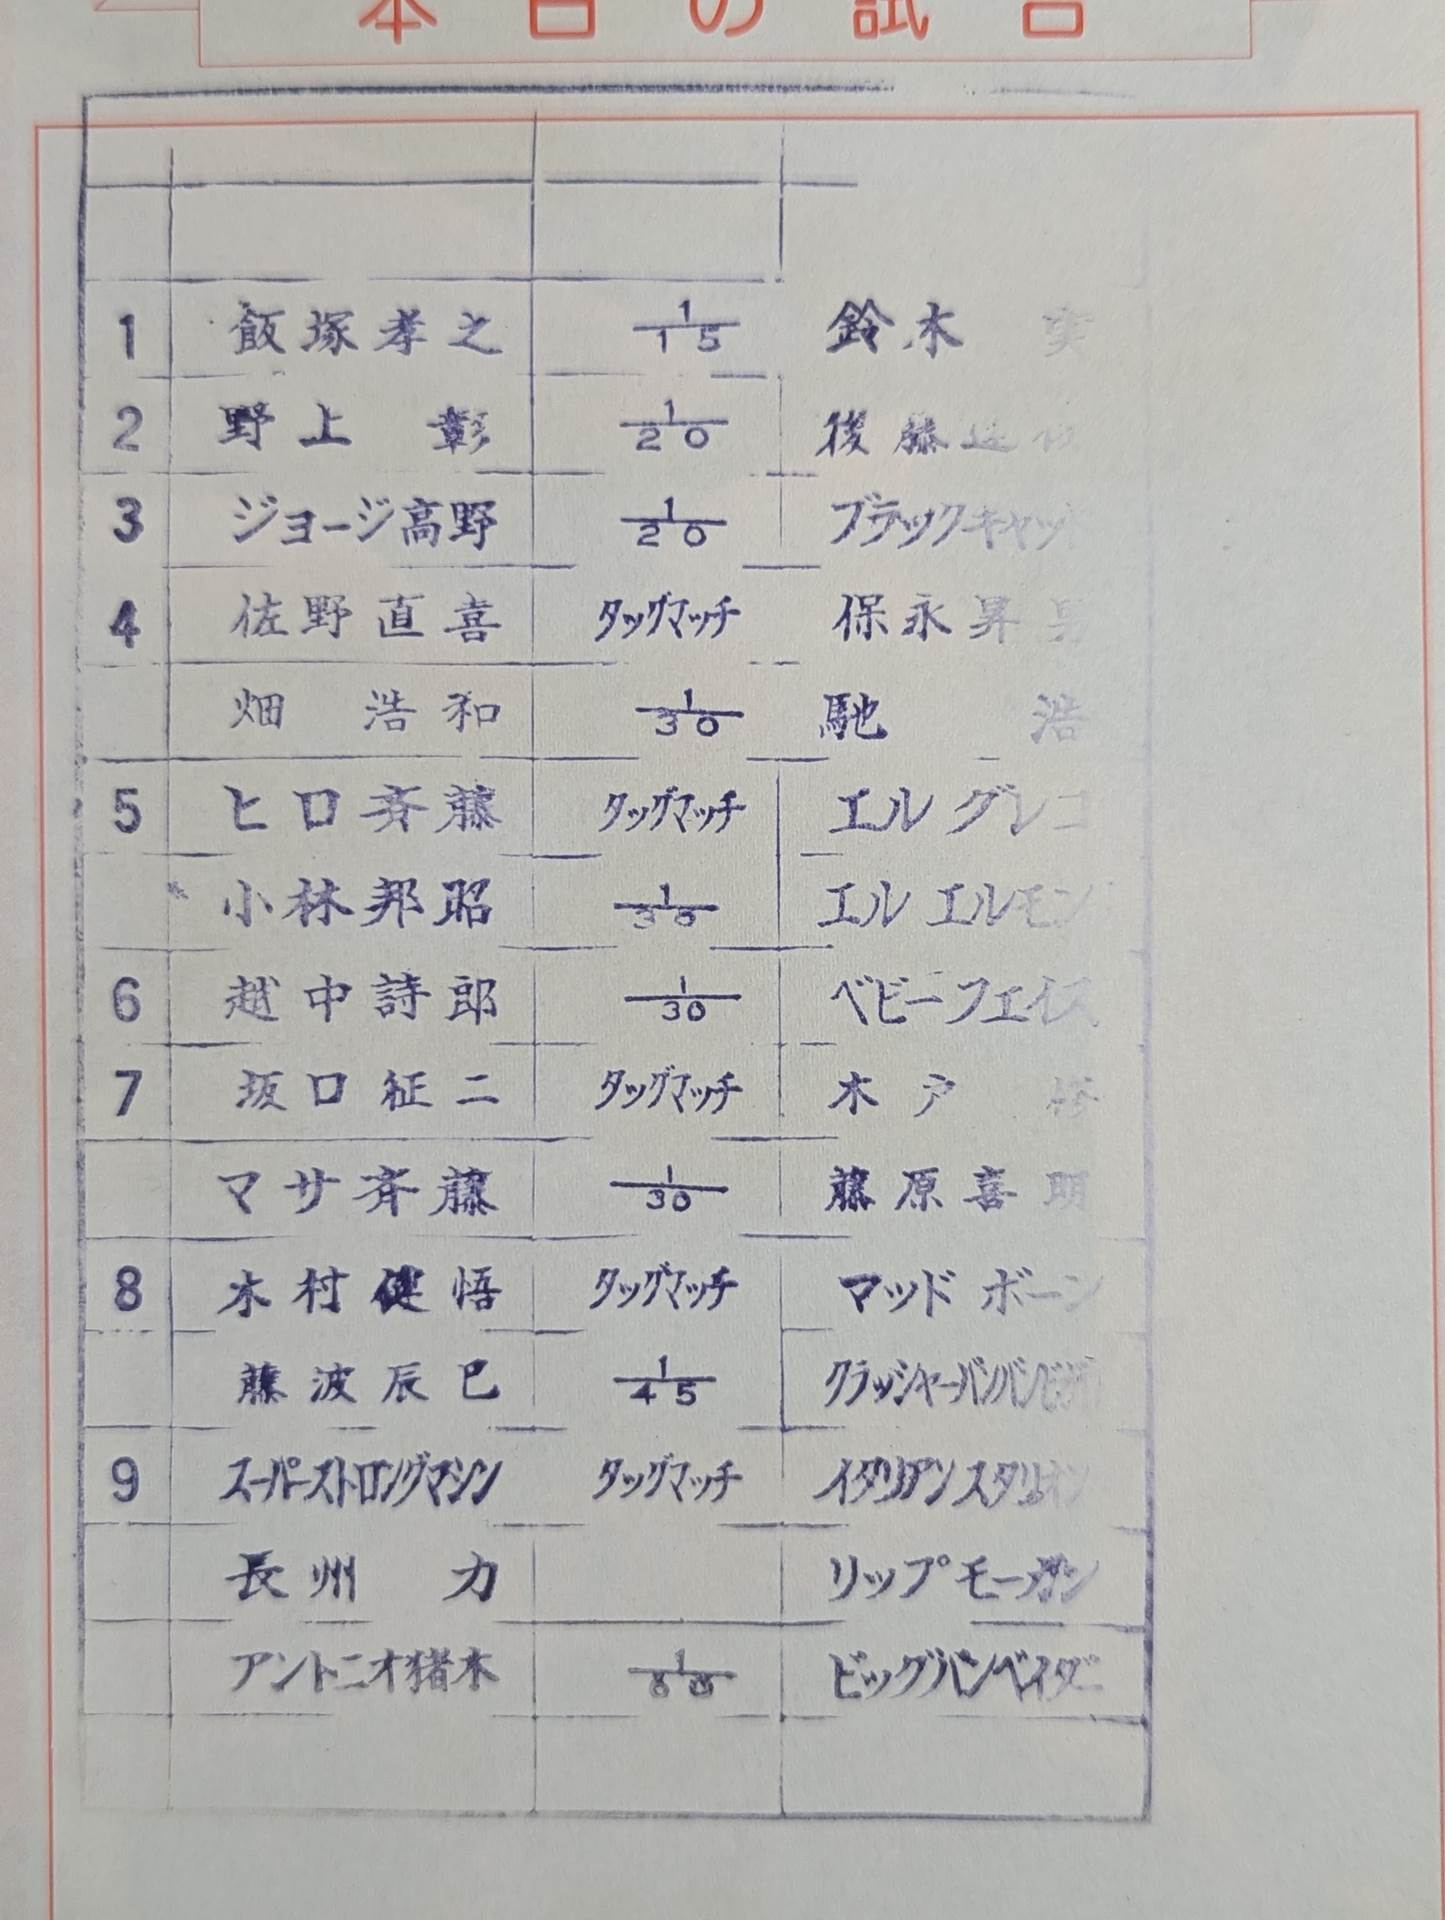 本日の試合
1 飯塚孝之 1/15 鈴木 実
2 野上 彰 1/20 後藤達
3 ジョージ高野 1/20 ブラックキャット
4 佐野直喜 タッグマッチ 保永昇男
畑 浩和 1/30 馳 浩
5 ヒロ斉藤 タッグマッチ エル グレコ
小林邦昭 1/30 エル エルモン
6 越中詩郎 1/30 ベビーフェイス
7 坂口征二 タッグマッチ 木戸 修
マサ斉藤 1/30 藤原喜明
8 木村健悟 タッグマッチ マッド ボーン
藤波辰巳 1/45 クラッシャーバンバンビガロ
9 スーパーストロングマシン タッグマッチ イタリアン スタリオン
長州 力 リップモーガン
アントニオ猪木 1/60 ビッグバンベイダー